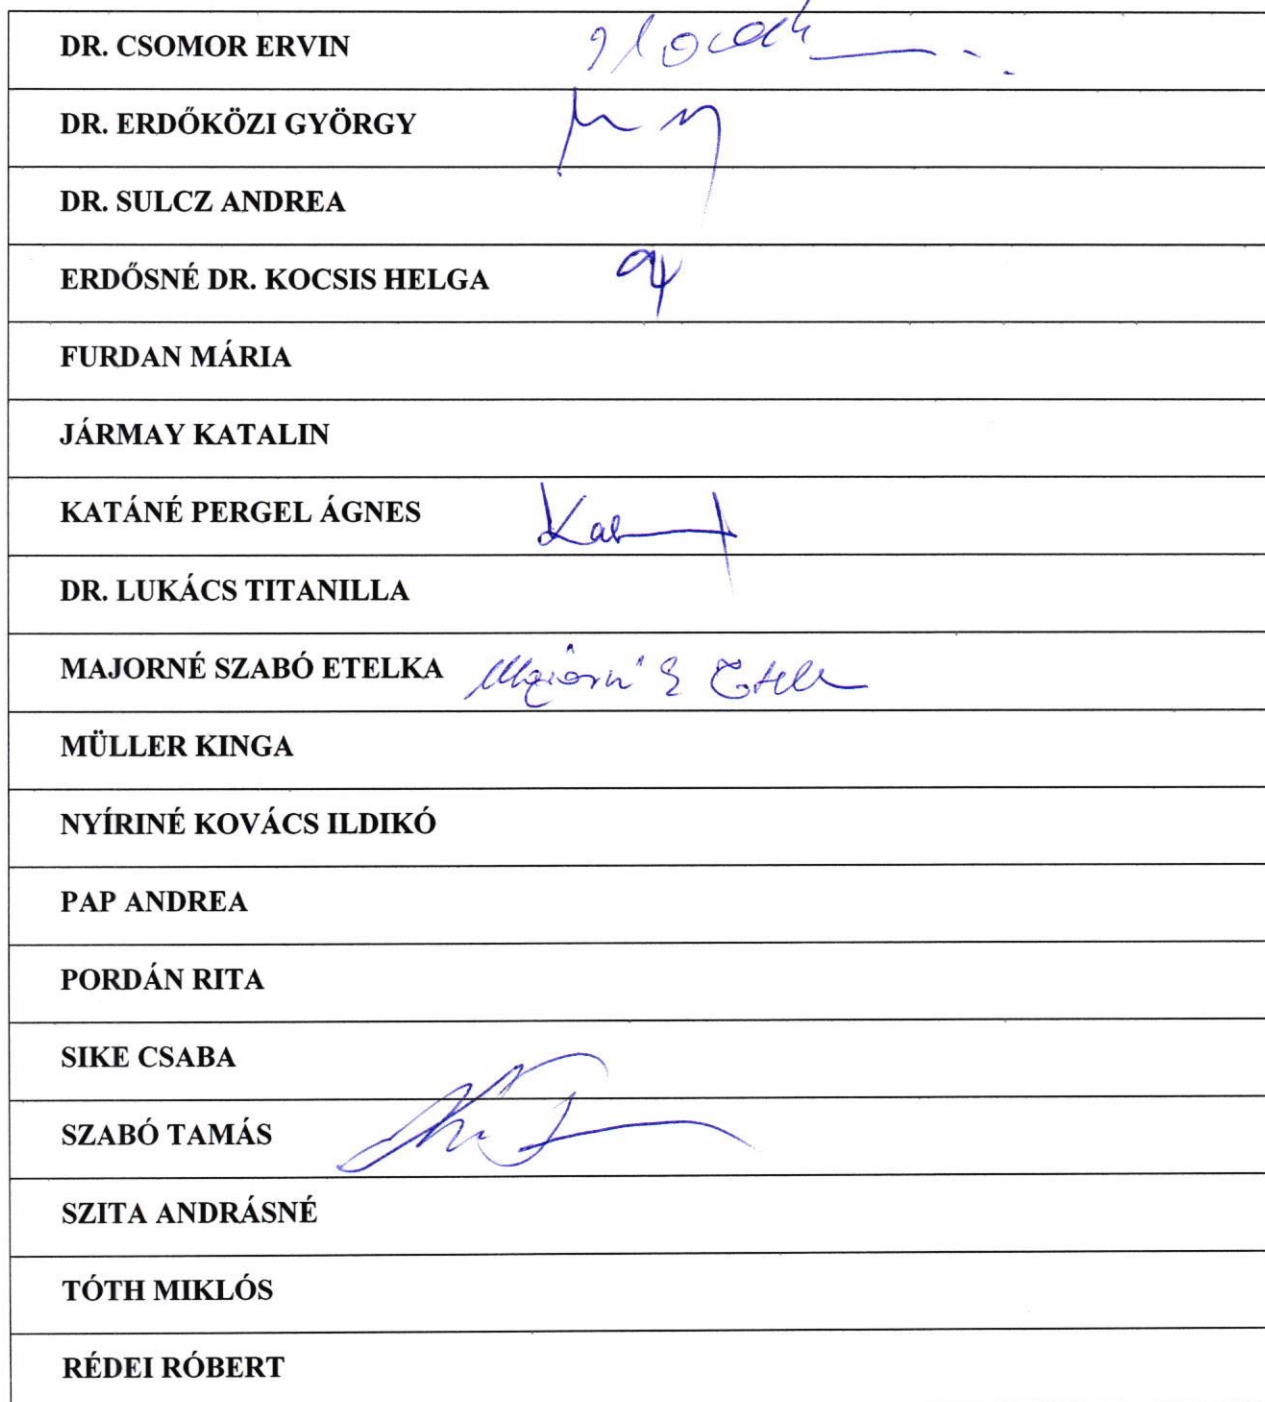 DR. CSOMOR ERVIN
DR. ERDŐKÖZI GYÖRGY
DR. SULCZ ANDREA
ERDŐSNÉ DR. KOCSIS HELGA
FURDAN MÁRIA
JÁRMAY KATALIN
KATÁNÉ PERGEL ÁGNES
DR. LUKÁCS TITANILLA
MAJORNÉ SZABÓ ETELKA
MÜLLER KINGA
NYÍRINÉ KOVÁCS ILDIKÓ
PAP ANDREA
PORDÁN RITA
SIKE CSABA
SZABÓ TAMÁS
SZITA ANDRÁSNÉ
TÓTH MIKLÓS
RÉDEI RÓBERT